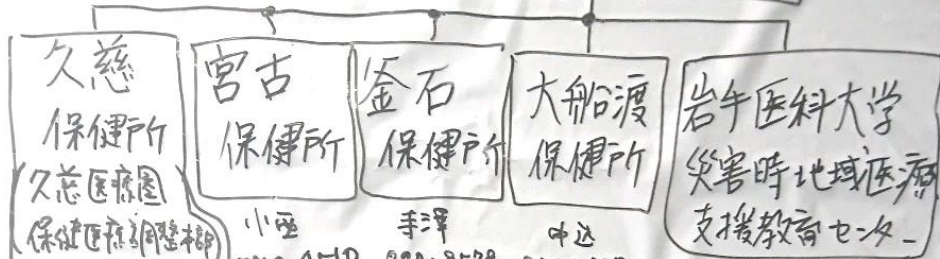 久慈
保健所
久慈医療圏
保健医療調整本部
宮古
保健所
釜石
保健所
大船渡
保健所
岩手医科大学
災害時地域医療
支援教育センター